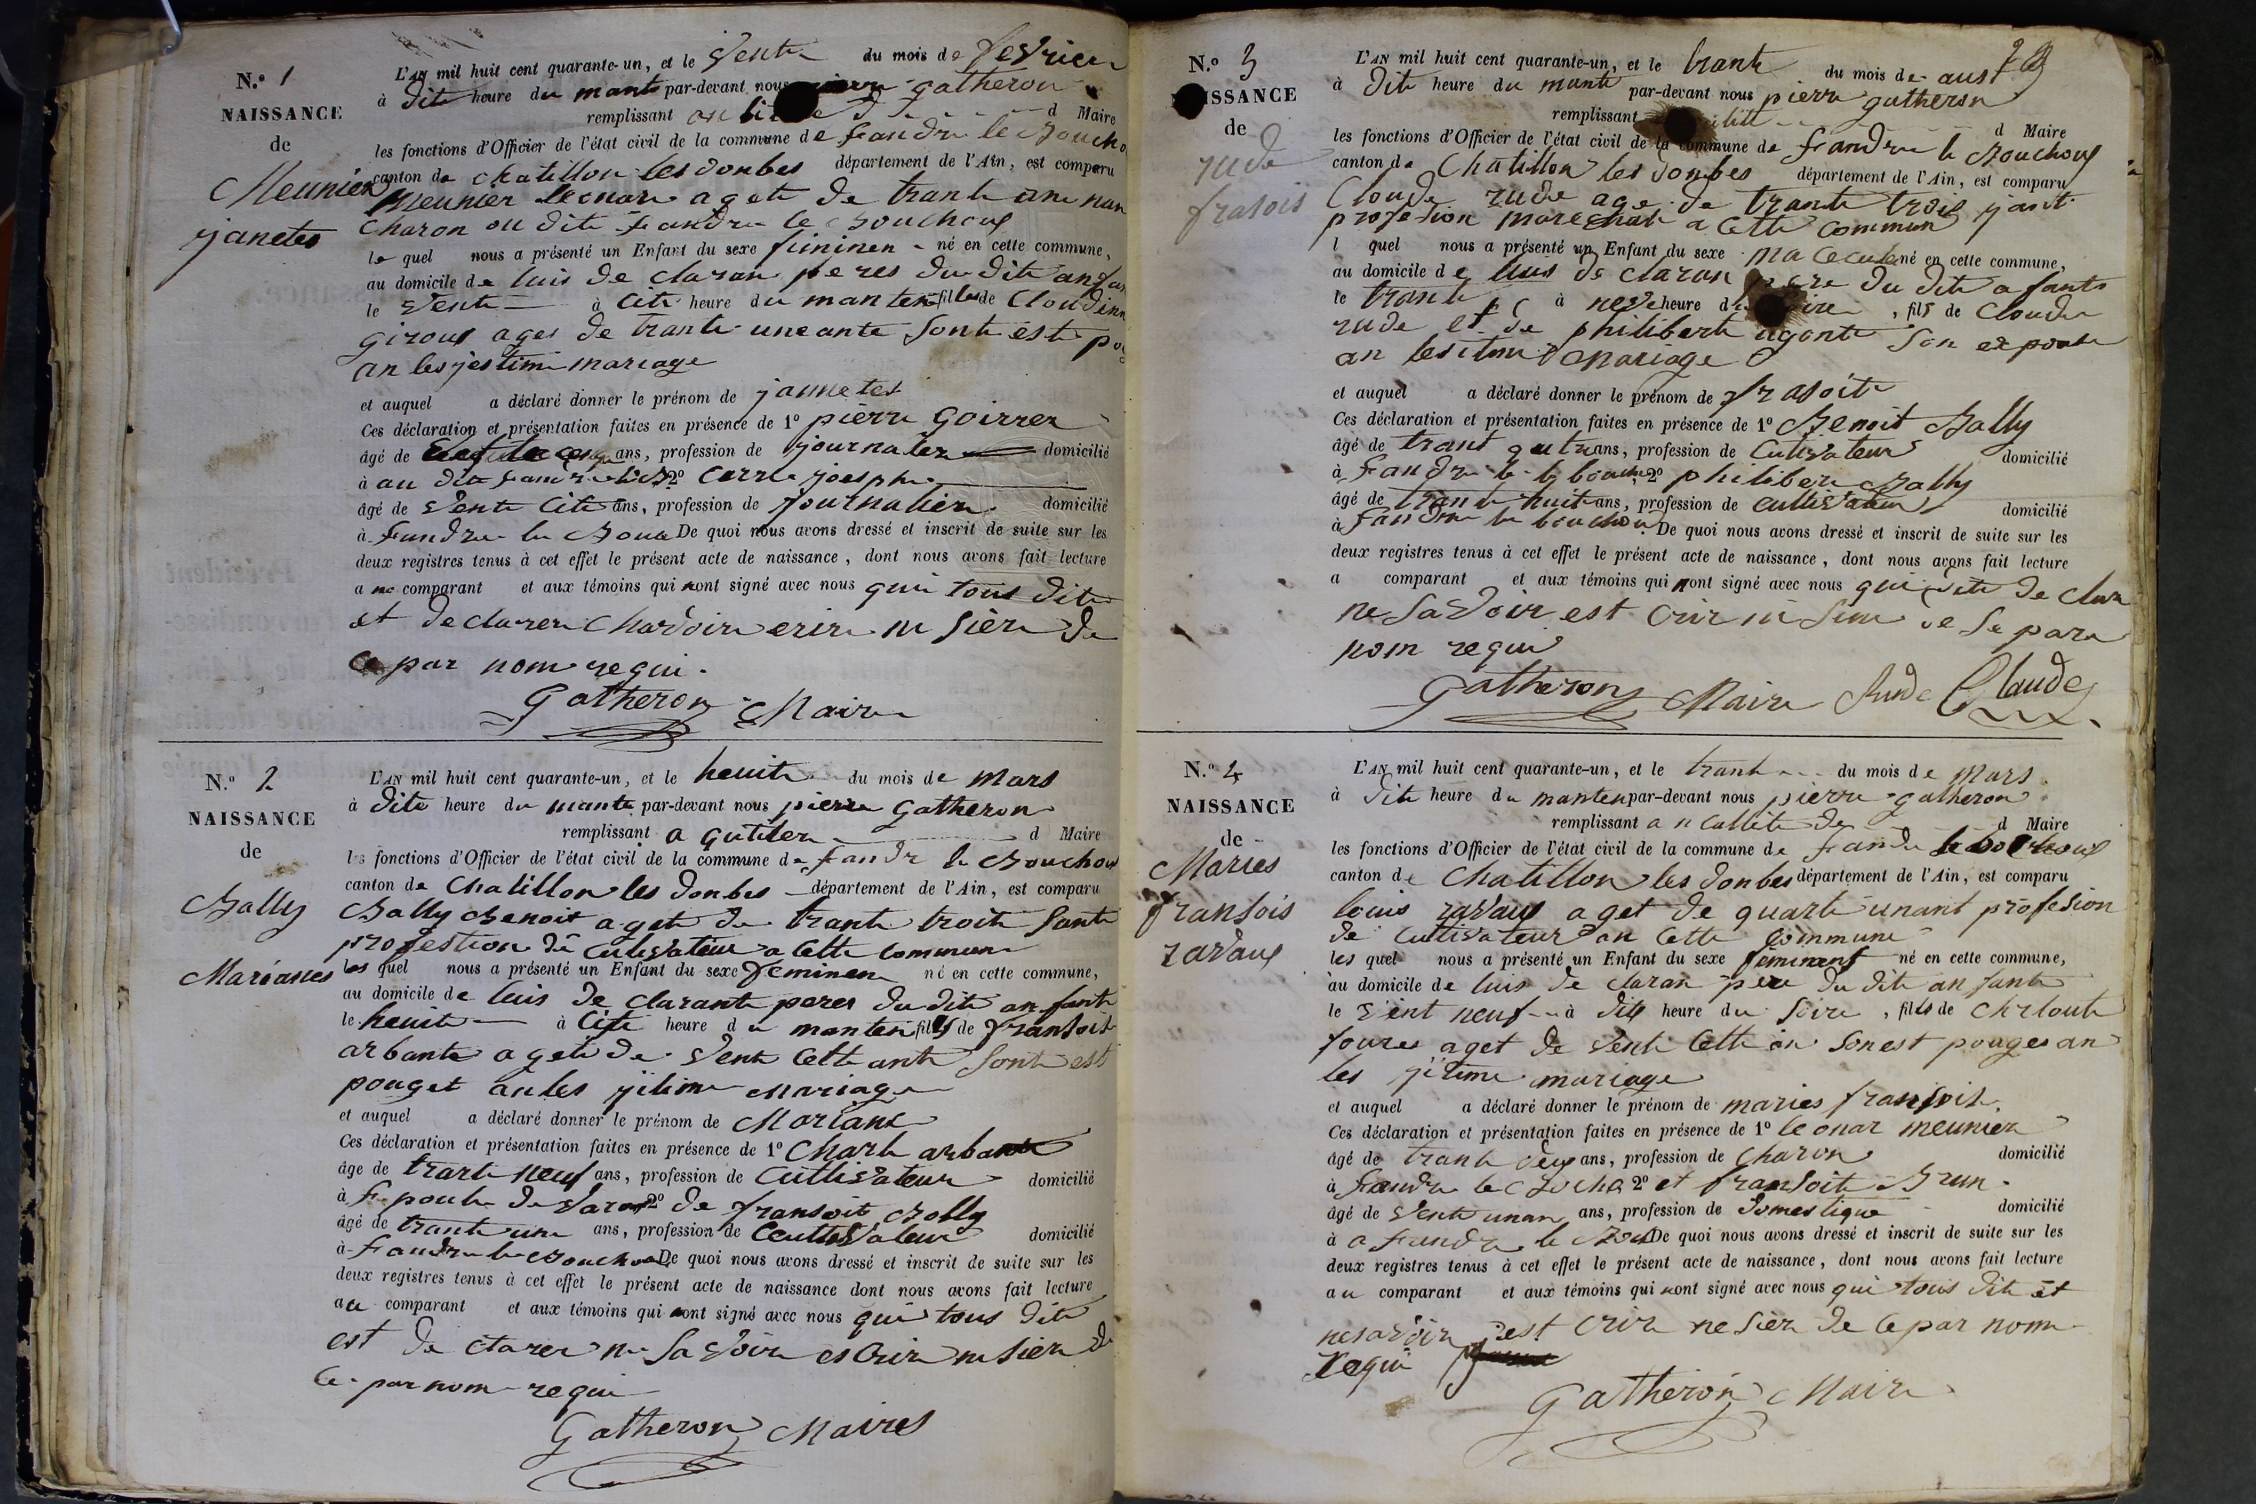 N.º 1
NAISSANCE
de
Meunier
janetes
L'AN mil huit cent quarante-un, et le vente du mois de fevrier
à dite heure du mante par-devant nous gatheron
remplissant d Maire
les fonctions d'Officier de l'état civil de la commune de frandre le Boucho
canton de chatillon les donbes département de l'Ain, est comparu
Meunier leonare aget de trante une nan
Charon ou dite frandre le Bouchous
le quel nous a présenté un Enfant du sexe fiminen né en cette commune,
au domicile de luis de claran peres du dite anfan
le vente à cite heure du manten filles de Cloudinn
girous ages de trante une ante sonte este pou
an les jestime mariage
et auquel a déclaré donner le prénom de jannetes
Ces déclaration et présentation faites en présence de 1º pierre goirrer
âgé de ans, profession de journalier domicilié
à au dite frandre 2º Carre joesph
âgé de vente cite ans, profession de journalier domicilié
à frandre le Bouc De quoi nous avons dressé et inscrit de suite sur les
deux registres tenus à cet effet le présent acte de naissance, dont nous avons fait lecture
a comparant et aux témoins qui nont signé avec nous qui tous dite
et declarer chavoir erire ne sière de
ce par nom requi.
Gatheron Maire
N.º 2
NAISSANCE
de
Bally
Marianes
L'AN mil huit cent quarante-un, et le heuite du mois de Mars
à dite heure du mante par-devant nous pierre gatheron
remplissant a qutiter d Maire
les fonctions d'Officier de l'état civil de la commune de frandr le Bouchous
canton de Chatillon les donbes département de l'Ain, est comparu
Bally Benoit aget de trante troite sante
profestion de cultivateur a cette commune
les quel nous a présenté un Enfant du sexe feminen né en cette commune,
au domicile de luis de clarante peres du dite anfante
le heuite à cite heure du manten fills de fransoit
arbante agete de vente cette ante sonte est
pouget an les jitime mariage
et auquel a déclaré donner le prénom de Mariane
Ces déclaration et présentation faites en présence de 1º Charle arbante
âge de trante neuf ans, profession de cultivateur domicilié
à St poule de varax 2º de fransoit Bolly
âgé de trante une ans, profession de Ceultivateur domicilié
à frandre le Bouchou De quoi nous avons dressé et inscrit de suite sur les
deux registres tenus à cet effet le présent acte de naissance dont nous avons fait lecture
au comparant et aux témoins qui nont signé avec nous qui tous dite
est de clarer ne savoire es crire ne sièr de
ce par nom requi
Gatheron Maires
N.º 3
NAISSANCE
de
rude
frasois
L'AN mil huit cent quarante-un, et le trante du mois de aust
à dite heure du mante par-devant nous pierre gatheron
remplissant d Maire
les fonctions d'Officier de l'état civil de la commune de frandre le Bouchous
canton de Chatillon les donbes département de l'Ain, est comparu
Cloude rude age de trante trois jant
profesion marechal a cette commun
l quel nous a présenté un Enfant du sexe maceculené en cette commune,
au domicile de luis de claran pere du dite a fante
le trante à neve heure du soire, fils de Cloude
rude et de philiberte agonte son exponte
an lesitime mariage
et auquel a déclaré donner le prénom de frasoite
Ces déclaration et présentation faites en présence de 1º Benoit Bally
âgé de trant qutr ans, profession de Cutivateur domicilié
à frandre le bouche 2º philiber Bally
âgé de trante huit ans, profession de cultivateur domicilié
à frandre le bouchou De quoi nous avons dressé et inscrit de suite sur les
deux registres tenus à cet effet le présent acte de naissance, dont nous avons fait lecture
a comparant et aux témoins qui nont signé avec nous qui dite de clar
ne savoir est crir ni sine de se par
nom requi
Gatheron Maire Rude Claude
N.º 4
NAISSANCE
de
Maries
fransois
ravaux
L'AN mil huit cent quarante-un, et le trante du mois de Mars
à dite heure du manten par-devant nous pierre gatheron
remplissant an callite de d Maire
les fonctions d'Officier de l'état civil de la commune de frandre le bouchous
canton de Chatillon les donbes département de l'Ain, est comparu
louis ravaux aget de quarte unant profesion
de cultivateur an cette commune
les quel nous a présenté un Enfant du sexe fiminent né en cette commune,
au domicile de luis de claran père du dite anfante
le vint neuf à dite heure du soire, filles de chrloute
foures aget de vente cette an son est pouges an
les jitime mariage
et auquel a déclaré donner le prénom de maries fransoit.
Ces déclaration et présentation faites en présence de 1º leonar meunier
âgé de trante deux ans, profession de charon domicilié
à frandre le Bucho 2º et fransoite Brun
âgé de vente unan ans, profession de domestique domicilié
à a frandre le Bou De quoi nous avons dressé et inscrit de suite sur les
deux registres tenus à cet effet le présent acte de naissance, dont nous avons fait lecture
au comparant et aux témoins qui nont signé avec nous qui tous dite et
ne savoir est crire ne sièr de ce par nom
requi
Gatheron Maire